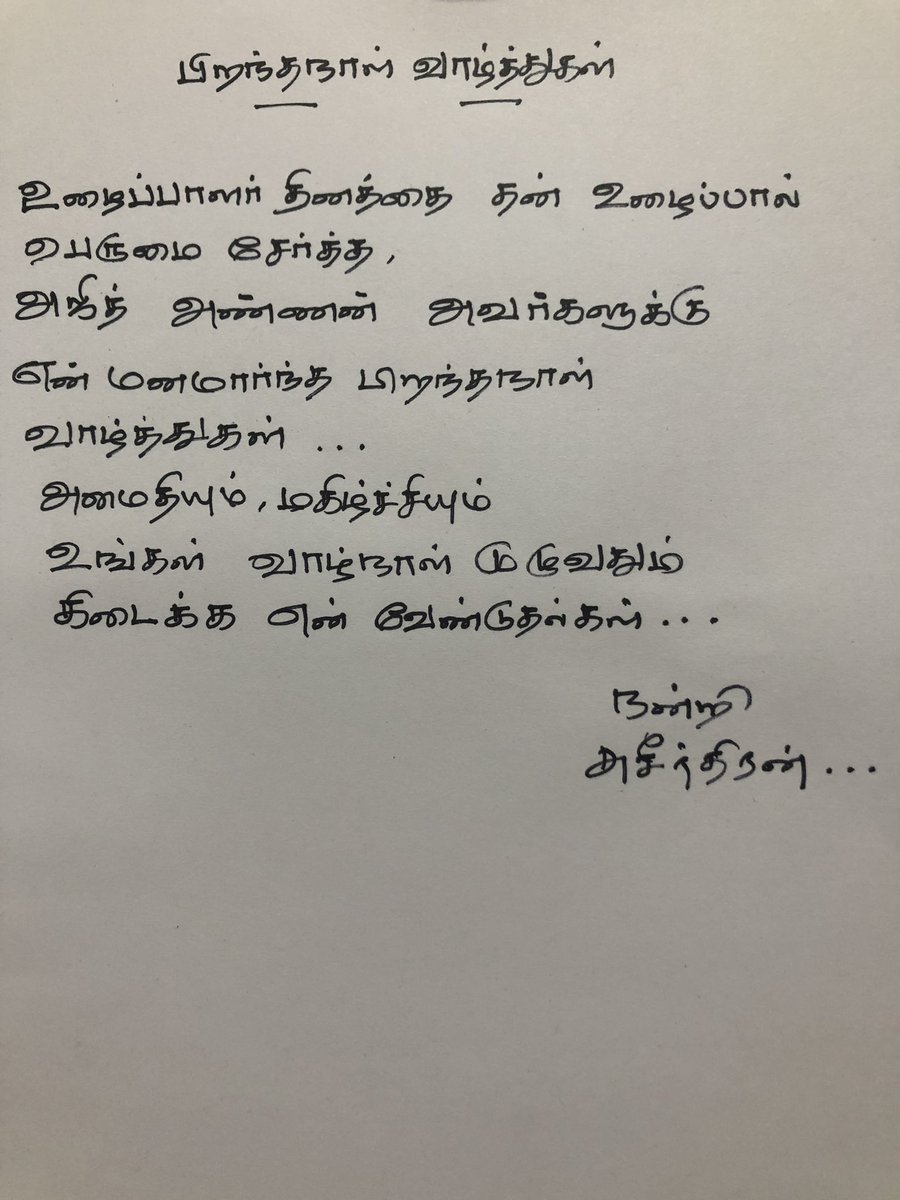 பிறந்தநாள் வாழ்த்துகள்
உழைப்பாளர் தினத்தை தன் உழைப்பால்
பெருமை சேர்த்த,
அஜித் அண்ணன் அவர்களுக்கு
என் மனமார்ந்த பிறந்தநாள்
வாழ்த்துகள் ...
அமைதியும், மகிழ்ச்சியும்
உங்கள் வாழ்நாள் முழுவதும்
கிடைக்க என் வேண்டுதல்கள் ...
நன்றி
சுசீந்திரன் ...